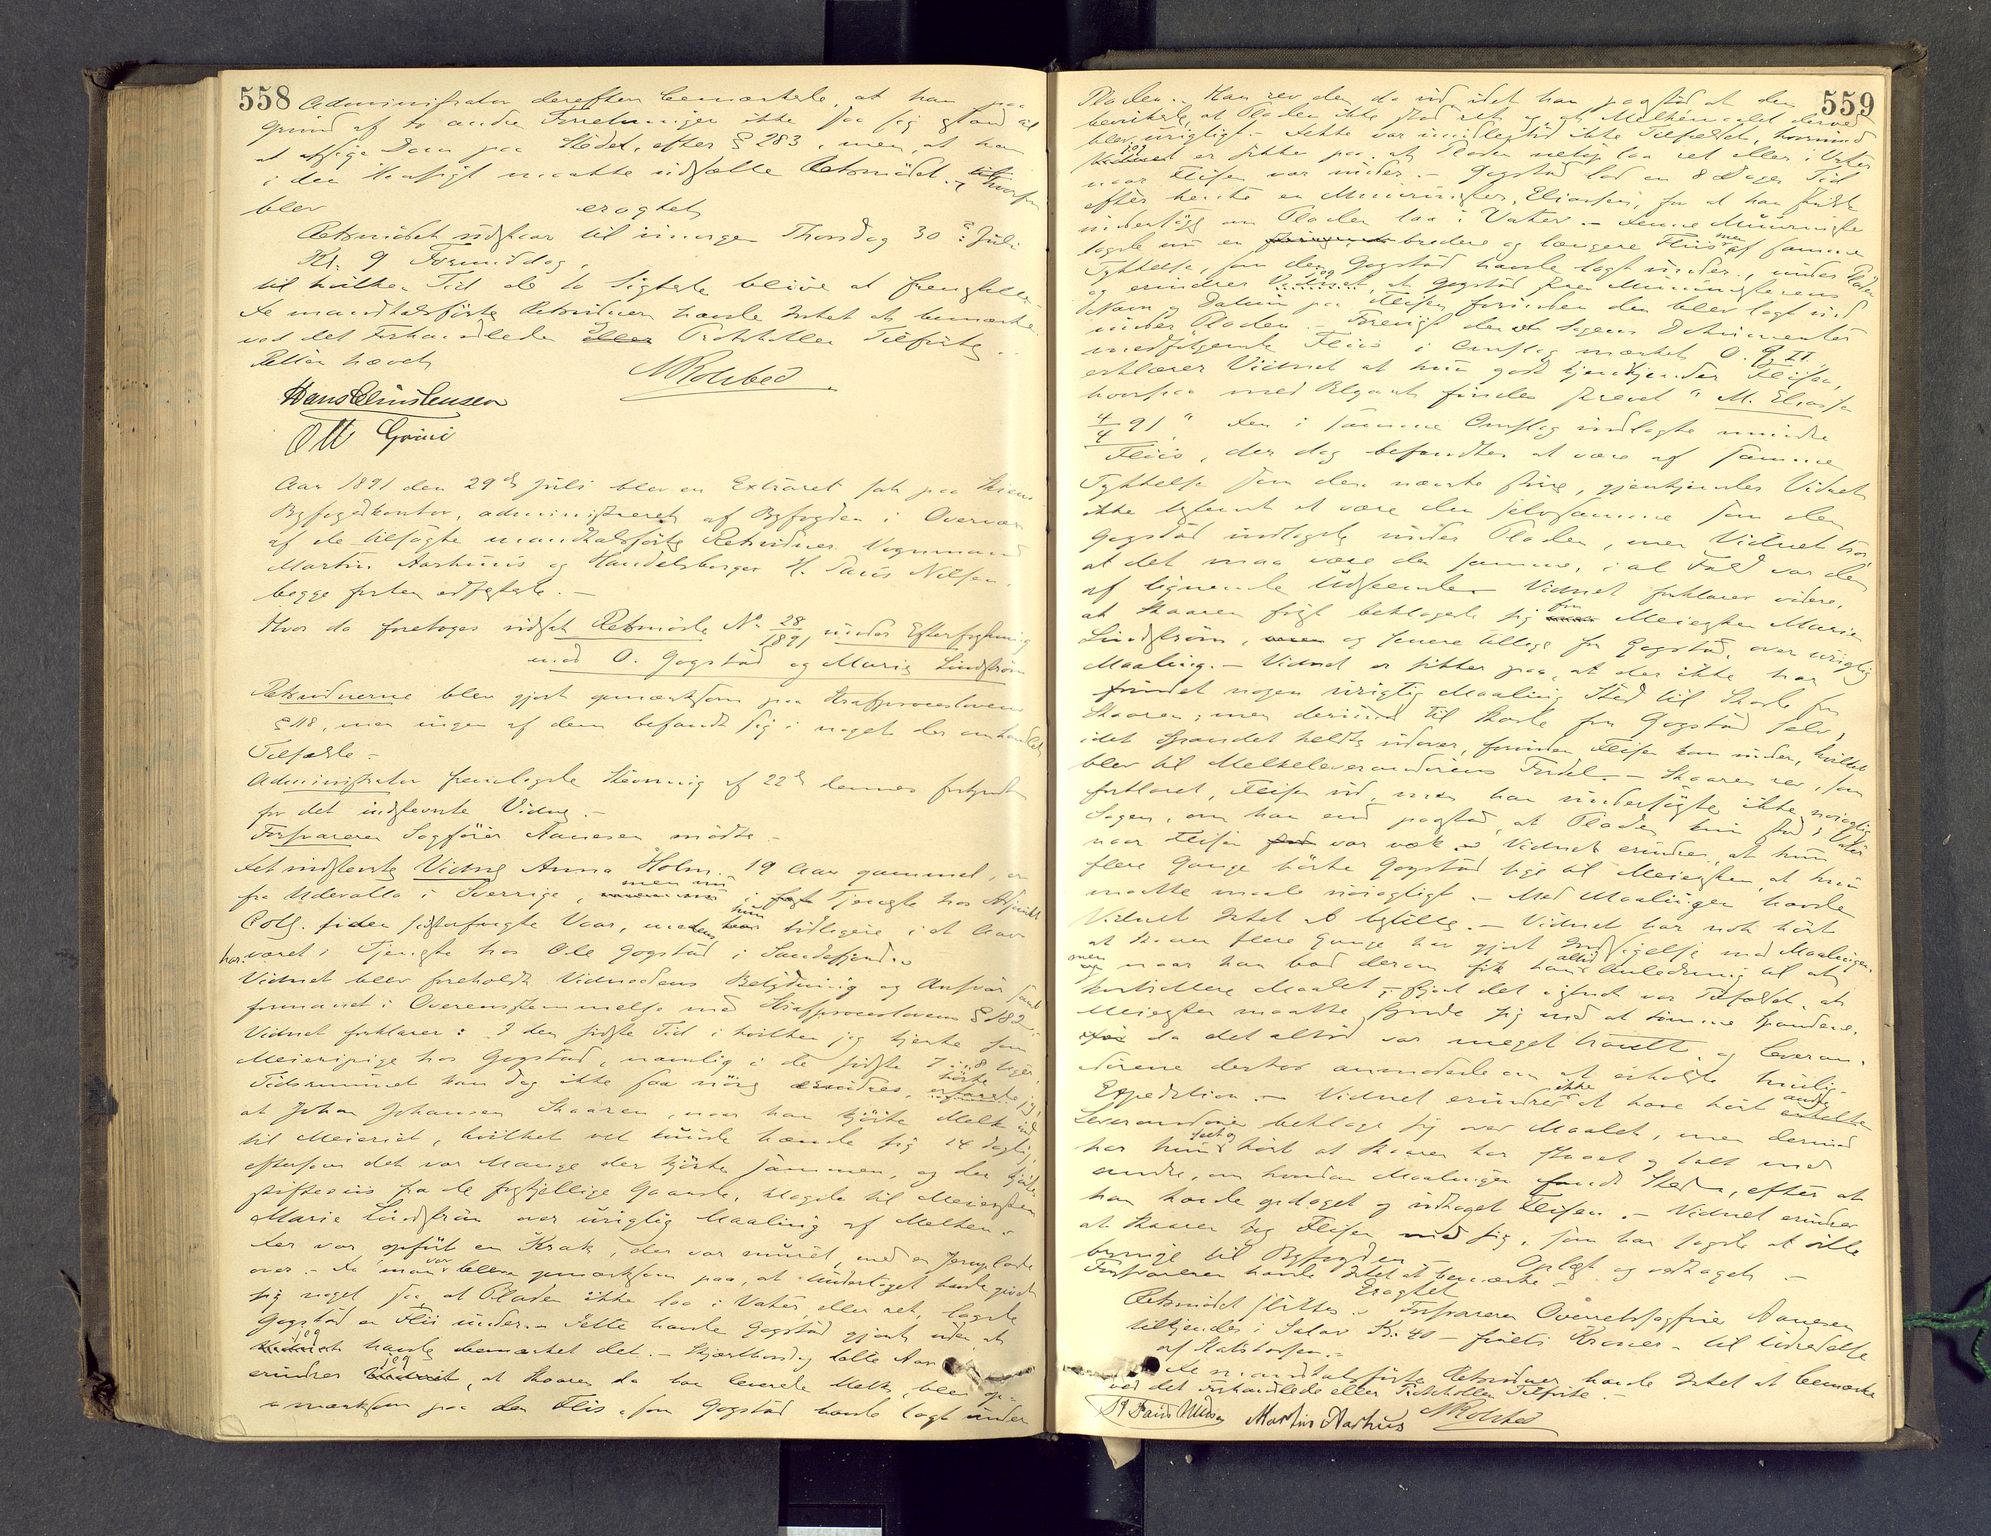 558
Administrator derefter bemærkede, at han paa
Grund af to andre Forretninger ikke saa sig istand til
at afsige Dom paa Stedet, efter § 283, men, at han
i den Hensigt maatte udsætte Retsmødet. – hvorfor
blev eragtet
Retsmødet udstaar til imorgen Thorsdag 30te Juli
Kl. 9 Formiddag,
til hvilken Tid de to Sigtede blive at fremstille.
De mandtalsførte Retsvidner havde Intet at bemærke
ved det Forhandlede eller Protokollen Tilførte. –
Retten hævet
NRolsted
Hans Christensen
Ott Grini
Aar 1891 den 29de Juli blev en Extraret sat paa Skiens
Byfogedkontor, administreret af Byfogden i Overvær
af de tilsagte mandtalsførte Retsvidner Vognmand
Martin Aarhuus og Handelsborger H. Faus Nilsen,
begge forhen edfæstede. –
Hvor da foretoges vidset Retsmøde No 28/1891 under Efterforskning
mod O. Gogstad og Marie Lindstrøm
Retsvidnerne blev gjort opmærksom paa Strafproceslovens
§ 118, men ingen af dem befandt sig i noget der omhandlet
Tilfælde –
Administrator fremlagde Stevning af 22de dennes forkyndt
for det indstevnte Vidne. –
Forsvareren Sagfører Aanesen mødte. –
Det indstevnte Vidne Anna Holm. – 19 Aar gammel, er
fra Udevalla i Sverrige, men nu i Tjeneste hos Adjunkt
Coll. siden sidstafvigte Vaar, medens hun tidligere i et Aar
har været i Tjeneste hos Ole Gogstad i Sandefjord. –
Vidnet blev foreholdt Vidneedens Betydning og Ansvar samt
formanet i Overensstemmelse med Strafproceslovens § 182 –
Vidnet forklarer: I den sidste Tid i hvilken jeg tjente som
Meieripige hos Gogstad, nemlig i de sidste 7 a 8 Uger,
Tidsrummet kan dog ikke saa nøie erindres, hørte jeg,
at Johan Johansen Skaaren, naar han kjørte Melk ind
til Meieriet, hvilket vel kunde hænde sig 14 daglig,
eftersom det var Mange der kjørte sammen, og der kjørtes
skiftesvis fra de forskjellige Gaarde, klagede til Meiersken
Marie Lindstrøm over urigtig Maaling af Melken. –
Der var opført en Krak, der var muret, med en Jernplade
over. – Da man var bleven opmærksom paa, at Underlaget havde givet
sig noget saa at Pladen ikke laa i Vater, eller ret, lagde
Gogstad en Flis under. – Dette havde Gogstad gjort uden at
jeg havde bemærket det. – Skjærthorsdag
erindrer jeg, at Skaaren da han leverede Melk, blev op-
mærksom paa den Flis, som Gogstad havde lagt under
559
Pladen. – Han rev den da ud idet han paastod at den
bevirkede, at Pladen ikke stod ret og at Melkemaalet derved
blev urigtigt. – Dette var imidlertid ikke Tilfældet, hvorimod
jeg er sikker paa, at Pladen netop laa ret eller i Vater
naar Flisen var under. – Gogstad lod en 8 Dages Tid
efter hente en Murmester, Eliassen, for at han skulde
undersøge om Pladen laa i Vater. – Denne Murmester
lagde nu en bredere og længere Flis men af samme
Tykkelse, som den Gogstad havde lagt under, under Pladen
og erindrer jeg, at Gogstad skrev Murmesterens
Navn og Datum paa Flisen forinden den blev lagt ind
under Pladen. – Forevist den et Sagens Dokumenter
medfølgende Flis i Omslag mærket O. G II.
erklærer Vidnet at hun godt kjendkjender Flisen,
hvorpaa med Blyant findes skrevet " M. Eliassen
4/4 91 " Den i samme Omslag indlagte mindre
Flis, der dog befandtes at være af samme
Tykkelse som den næste store, gjenkjender Vidnet
ikke bestemt at være den selvsamme som den
Gogstad indlagde under Pladen, men Vidnet tror
at det maa være den samme, i al Fald var den
af lignende Udseende. Vidnet forklarer videre,
at Skaaren først beklagede sig for Meiersken Marie
Lindstrøm, og senere tillige for Gogstad, over urigtig
Maaling. – Vidnet er sikker paa, at der ikke har
fundet nogen urigtig Maaling Sted til Skade for
Skaaren; men derimod til Skade for Gogstad selv,
idet Spandet heldte udover, forinden Flisen kom under, hvilket
blev til Melkeleverandørens Fordel. – Skaaren rev, som
forklaret, Flisen ud, men han undersøgte ikke nøiagtig
Sagen, om han end paastod, at Pladen kun stod i Vater
naar Flisen var væk. – Vidnet erindrer, at hun
flere Gange hørte Gogstad sige til Meiersken, at hun
maatte maale nøiagtigt. – Med Maalingen havde
Vidnet Intet at bestille. – Vidnet har nok hørt
at Skaaren flere Gange har gjort Indsigelse mod Maalingen,
men naar han bad derom fik han altid Anledning til at
kontrollere Maalet, skjønt det oftest var Tilfældet, at
Meiersken maatte skynde sig med at tømme Spandene,
da det altid var meget travlt, og Leveran-
dørene derhos anmodede om at erholde hurtig
Expedition. – Vidnet erindrer ikke at have hørt andre
Leverandører beklage sig over Maalet, men derimod
har hun seet og hørt at Skaaren har staaet og talt med
andre, om hvordan Maalingen fandt Sted, efter at
han havde opdaget og udtaget Flisen. – Vidnet erindrer
at Skaaren tog Flisen med sig, som han sagde at ville
bringe til Byfogden – Oplæst og vedtaget. –
Forsvareren havde Intet at bemærke –
Eragtet
Retsmødet sluttes. – Forsvareren Overretssagfører Aanesen
tilkjendes i Salær Kr. 40 – førti Kroner – til Udredelse
af Statskassen. –
De mandtalsførte Retsvidner havde Intet at bemærke
ved det Forhandlede eller Protokollen Tilførte –
H Faus Nilsen Martin Aarhus NRolsted